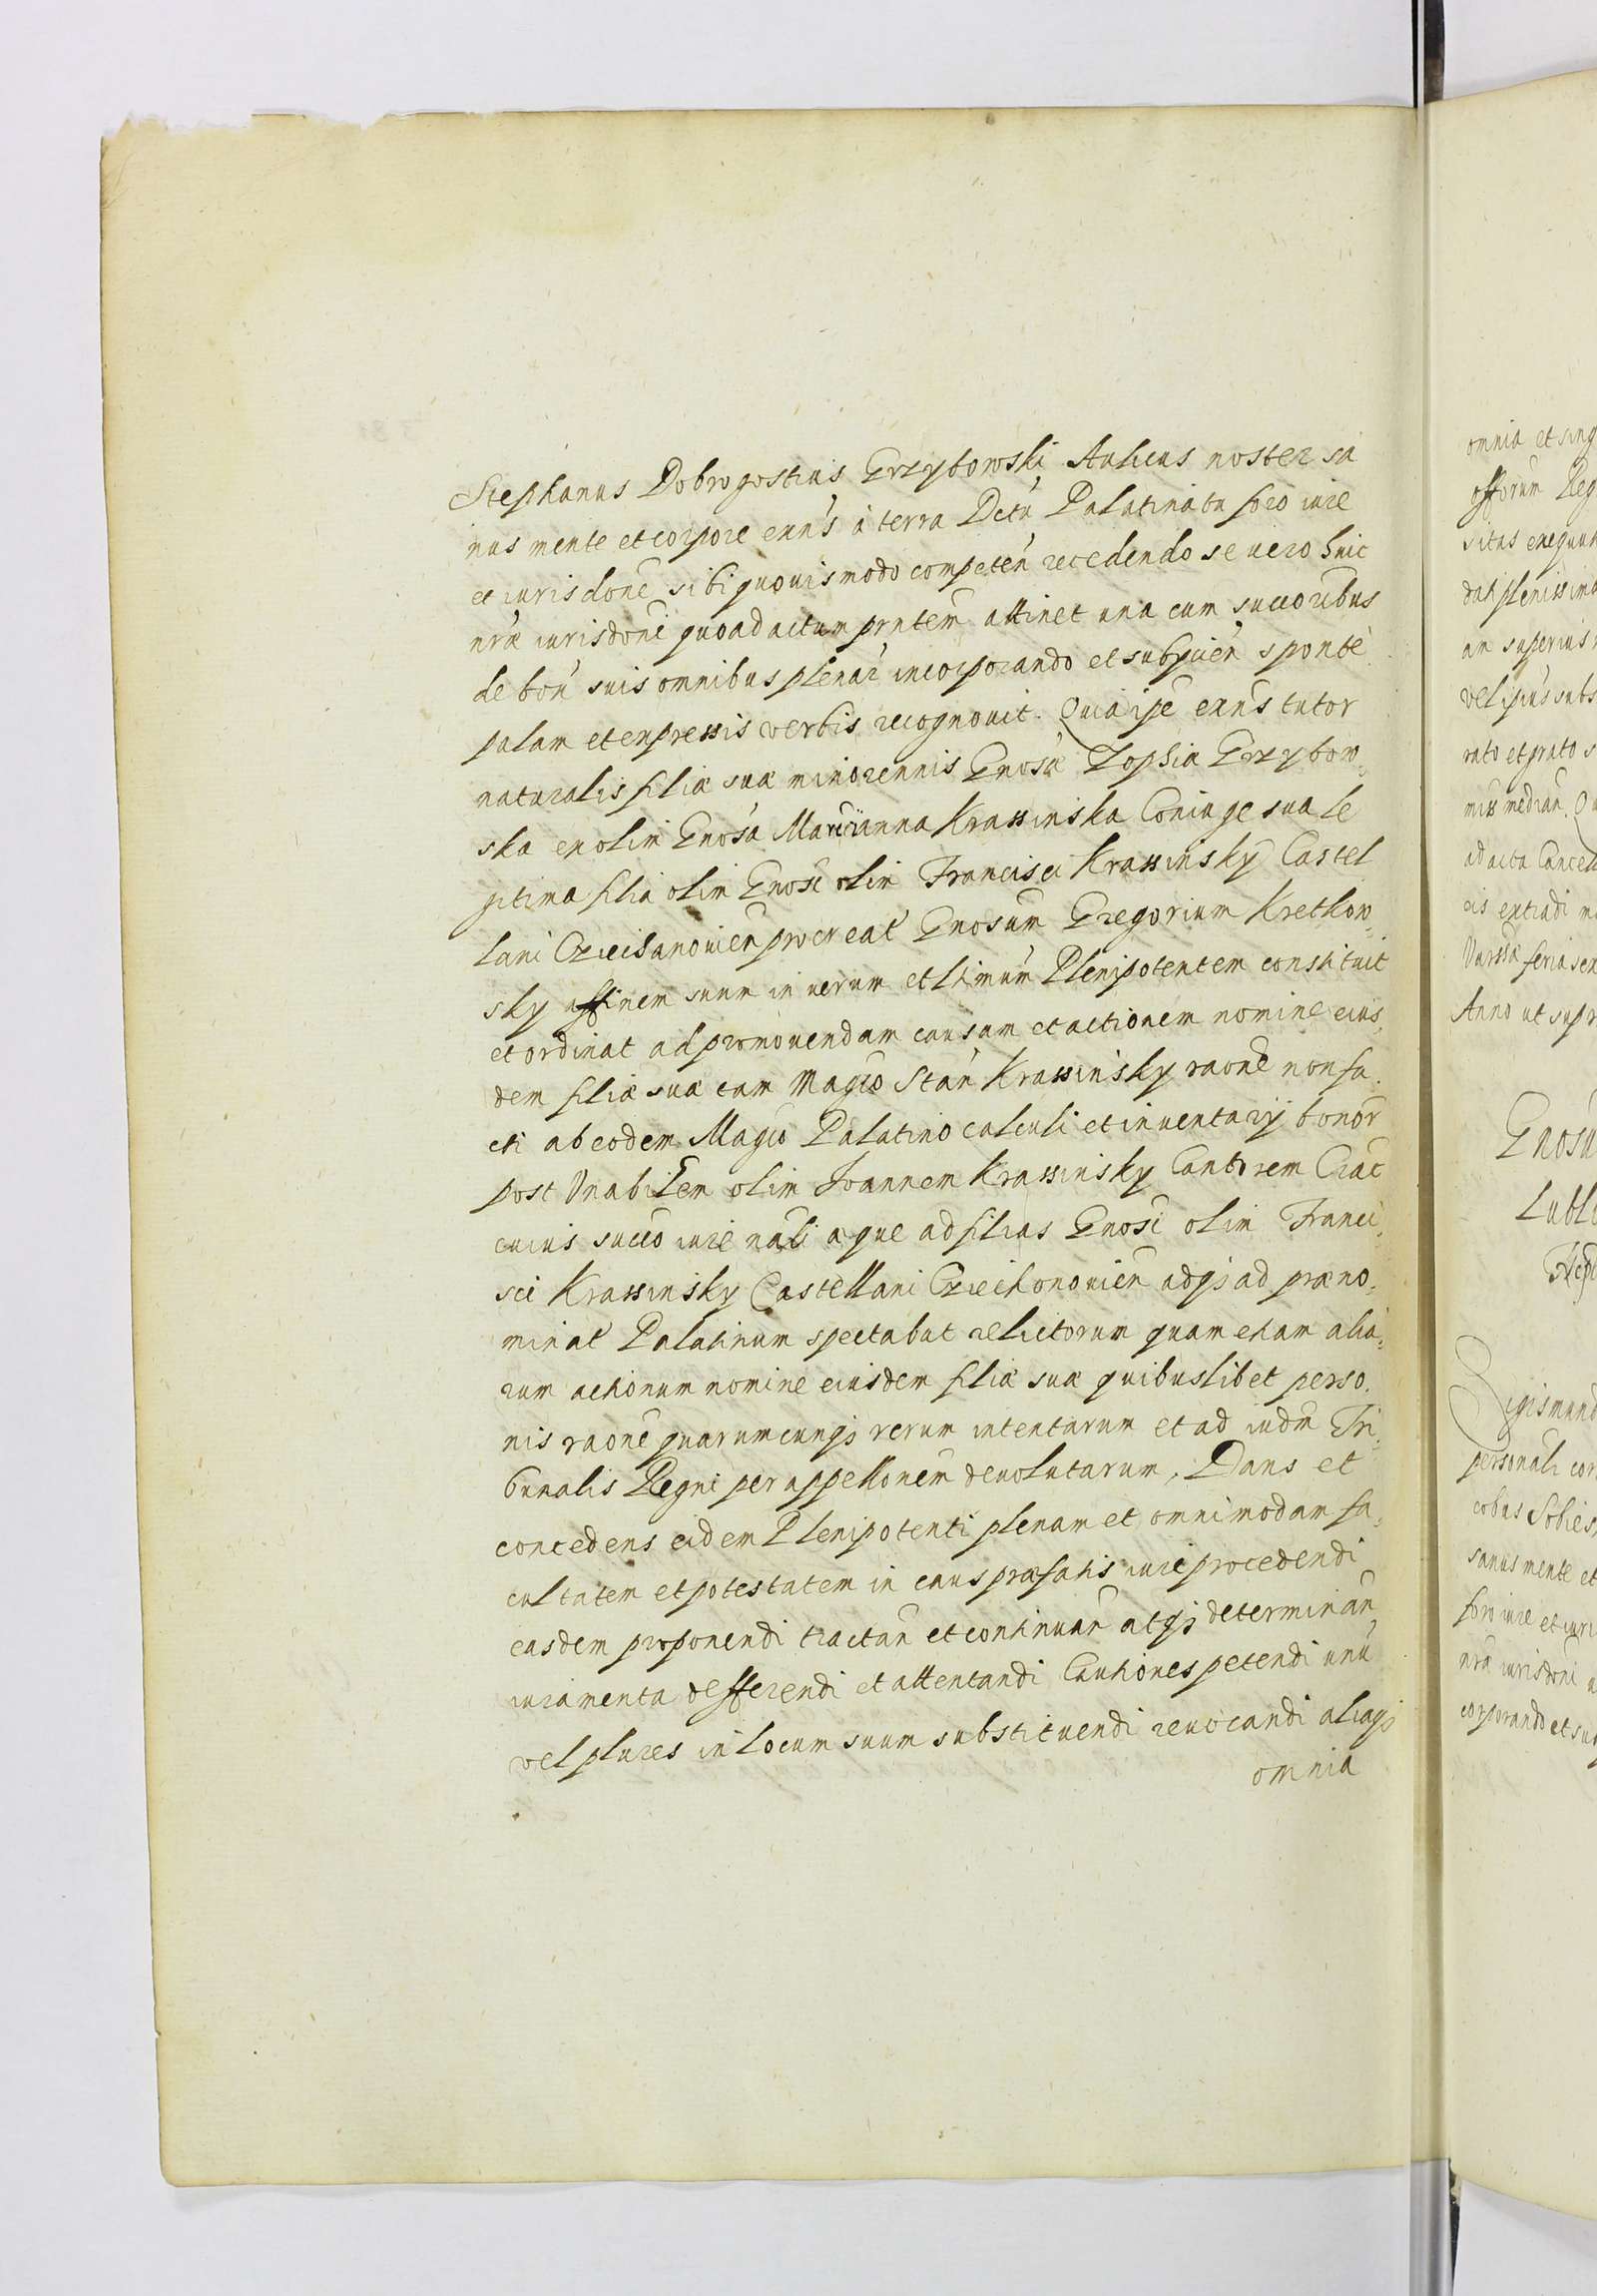 Stephanus Dobrogostius Grzybowski Aulicus noster sa
nus mente et corpore exn's a terra Dctu Palatinatu foro iure
et iurisdone sibi quouismodo competen recedendo se uero huic
nrae iurisdoni quoad actum prntem attinet una cum succoribus
de bon suis omnibus plenar incorporando et subyicien sponte
palam et expressis verbis recognouit. Quia ipse exns tutor
naturalis filiae suae minorennis Gnosae Zophia Grzybow
ska ex olim Gnosa Marianna Krassinska Coniuge sua le
gitima filia olim Gnosi olim Francisci Krassinsky Castel
lani Cziechanouien procreat Gnosum Gregorium Kretkow
sky affinem suum in uerum et ltimum Plenipotentem constituit
et ordinat ad promouendam causam et actionem nomine eius
dem filiae suae cum Magco Stan Krassinsky raone non fa
cti ab eodem Magco Palatino calculi et inuentarij bonor
post Vnabilem olim Joannem Krassinsky Cantorem Crac
cuius succo iure nali aque ad filias Gnosi olim Franci
sci Krassinsky Castellani Cziechonouien adqz ad praeno
minat Palatinum spectabat relictorum quam etiam alia
rum actionum nomine eiusdem filiae suae quibuslibet perso
nis raone quarumcunqz rerum intentarum et ad iudm Tri
bunalis Regni per appellonem deuolutarum, Dans et
concedens eidem Plenipotenti plenam et omnimodam fa
cultatem et potestatem in caus praefatis iure procedendi
easdem proponendi tractan et continuan atqz determinan
iuramenta defferendi et attentandi Cautiones petendi unu
vel plures in locum suum substituendi reuocandi aliaqz
omnia
omnia et sing
offorum Reg
sitas
dat plenissima
superius
vel ipius subs
rato et grato
ad acta Cancell
cis extradi
feria sex
Anno ut supr
Gnosu
Lubl
Sigismund
personali
cobus Sobies
sanus mente et
foro iure et iuri
nra iurisdoni
corporando et su